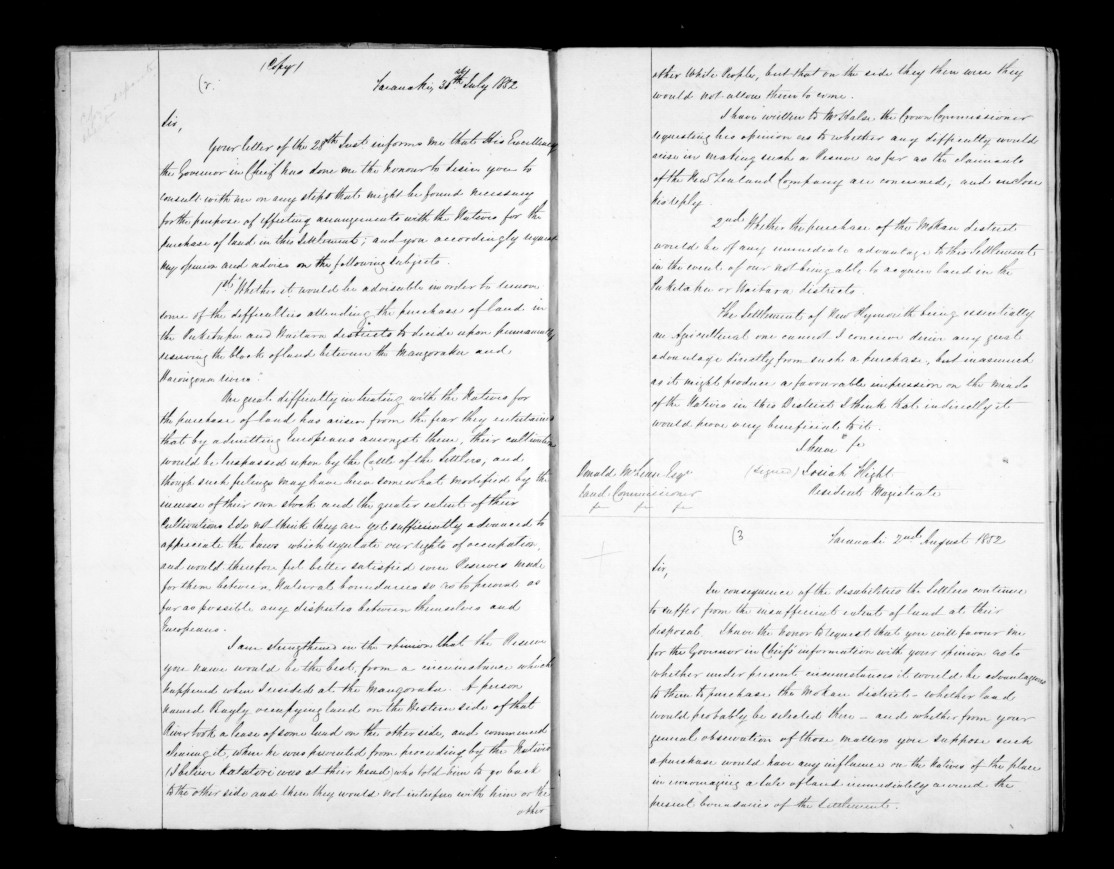 (Copy)
(2.
Taranaki, 31st July 1852
Sir,
Your letter of the 28th Inst informs me that His Excellency
the Governor in Chief has done me the honour to desire you to
consult with me on any steps that might be found necessary
for the purpose of effecting arrangements with the Natives for the
purchase of land in this Settlement; and you accordingly request
my opinion and advice on the following subjects.
1st "Whether it would be advisable in order to remove
some of the difficulties attending the purchase of land in
the Puketapu and Waitara districts to decide upon permanently
reserving the block of land between the Mangoraka and
Waiongona rivers".
One great difficulty in treating with the Natives for
the purchase of land has arisen from the fear they entertained
that by admitting Europeans amongst them, their cultivations
would be trespassed upon by the Cattle of the Settlers, and
though such feelings may have been somewhat modified by the
increase of their own stock and the greater extent of their
Cultivations I do not think they are yet sufficiently advanced to
appreciate the laws which regulate our rights of occupation,
and would therefore feel better satisfied were Reserves made
for them between Natural boundaries so as to prevent as
far as possible any disputes between themselves and
Europeans.
I am strengthened in the opinion that the Reserve
you name would be the best, from a circumstance which
happened when I resided at the Mangoraka. A person
named Bayly occupying land on the Western side of that
River took a lease of some land on the other side, and commenced
clearing it, when he was prevented from proceeding by the Natives
(I believe Katatori was at their head) who told him to go back
to the other side and then they would not interfere with him or the
other
other White People, but that on the side they then were they
would not allow them to come.
I have written to Mr Halse the Crown Commissioner
requesting his opinion as to whether any difficulty would
arise in making such a Reserve as far as the claimants
of the New Zealand Company are concerned, and enclose
his reply.
2nd "Whether the purchase of the Mokau district
would be of any immediate advantage to this Settlement
in the event of our not being able to acquire land in the
Puketapu or Waitara districts.
The Settlement of New Plymouth being essentially
an Agricultural one cannot I conceive derive any great
advantage directly from such a purchase, but inasmuch
as it might produce a favourable impression on the minds
of the Natives in this District I think that indirectly it
would prove very beneficial to it.
I have &c
(signed) Josiah Flight
Resident Magistrate
Donald McLean Esqr
Land Commissioner
(3
Taranaki 2nd August 1852
Sir,
In consequence of the disabilities the Settlers continue
to suffer from the insufficient extent of land at their
disposal. I have the honor to request that you will favour me
for the Governor in Chief's information with your opinion as to
whether under present circumstances it would be advantageous
to them to purchase the Mokau district – whether land
would probably be selected there – and whether from your
general observation of those matters you suppose such
a purchase would have any influence on the Natives of the place
in encouraging a sale of land immediately around the
present boundaries of the Settlement.